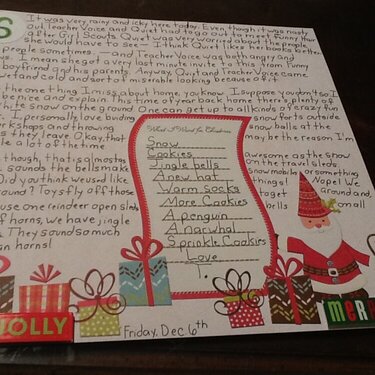 S
It was very rainy and icky here today. Even though it was nasty
out Teacher Voice and Quiet had to go out to meet Funny that
after Girl Scouts. Quiet was very worried about the people
she would have to see — I think Quiet likes her books better
people sometimes. — and Teacher Voice was both angry and
us. I mean she got a very last minute invite to this town. Funny
boyfriend and his parents. Anyway, Quiet and Teacher Voice came
wet and cold and sort of miserable looking because of it.
the one thing I miss about home, you know. I suppose you don't so I
be nice and explain this time of year back home there's plenty of
white snow on the ground. One can get up to all kinds of crazy fun
I personally love building snow forts outside
rkshops and throwing snow balls at the
s they leave. Okay, that may be the reason I'm
le a lot of the time.
though, that is almost as awesome as the snow
sounds the bells make on the travel sleds.
Did you think we used like snow mobiles or something
round? Toys fly off those things! Nope! We
use one reindeer open sleds around, and
of horns, we have jingle bells on all
s. They sound so much
an horns!
What I Want for Christmas
Snow
Cookies
Jingle bells
A new hat
Warm socks
More Cookies
A penguin
A narwhal
Sprinkle Cookies
Love
JOLLY
MER
Friday, Dec 6th